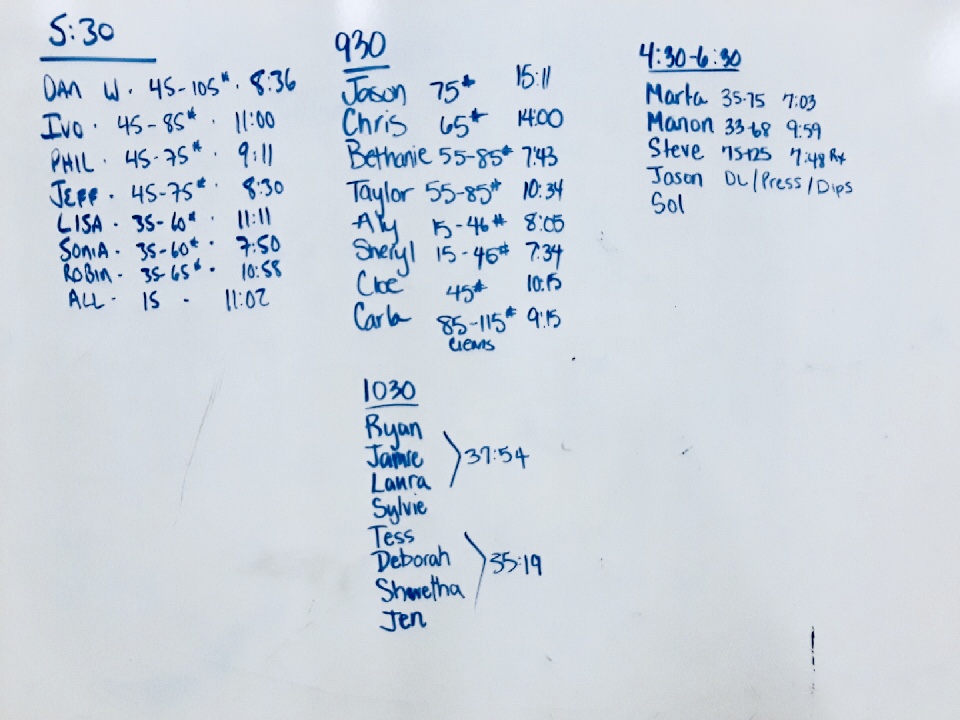 5:30
DAN W. 45-105# . 8:36
IVO . 45-85# . 11:00
PHIL . 45-75# . 9:11
JEFF . 45-75# . 8:30
LISA . 35-60# . 11:11
SONIA . 35-60# . 7:50
ROBIN . 35-65# . 10:58
ALL . 15 . 11:02
930
Jason 75# 15:11
Chris 65# 14:00
Bethanie 55-85# 7:43
Taylor 55-85# 10:34
Aly 15-46# 8:05
Sheryl 15-46# 7:34
Cloe 45# 10:15
Carla 85-115# 9:15
cleans
1030
Ryan
Jamie 37:54
Laura
Sylvie
Tess
Deborah 35:19
Shwetha
Jen
4:30-6:30
Marta 35-75 7:03
Manon 33-68 9:59
Steve 75-125 7:48 Rx
Jason DL/Press/Dips
Sol